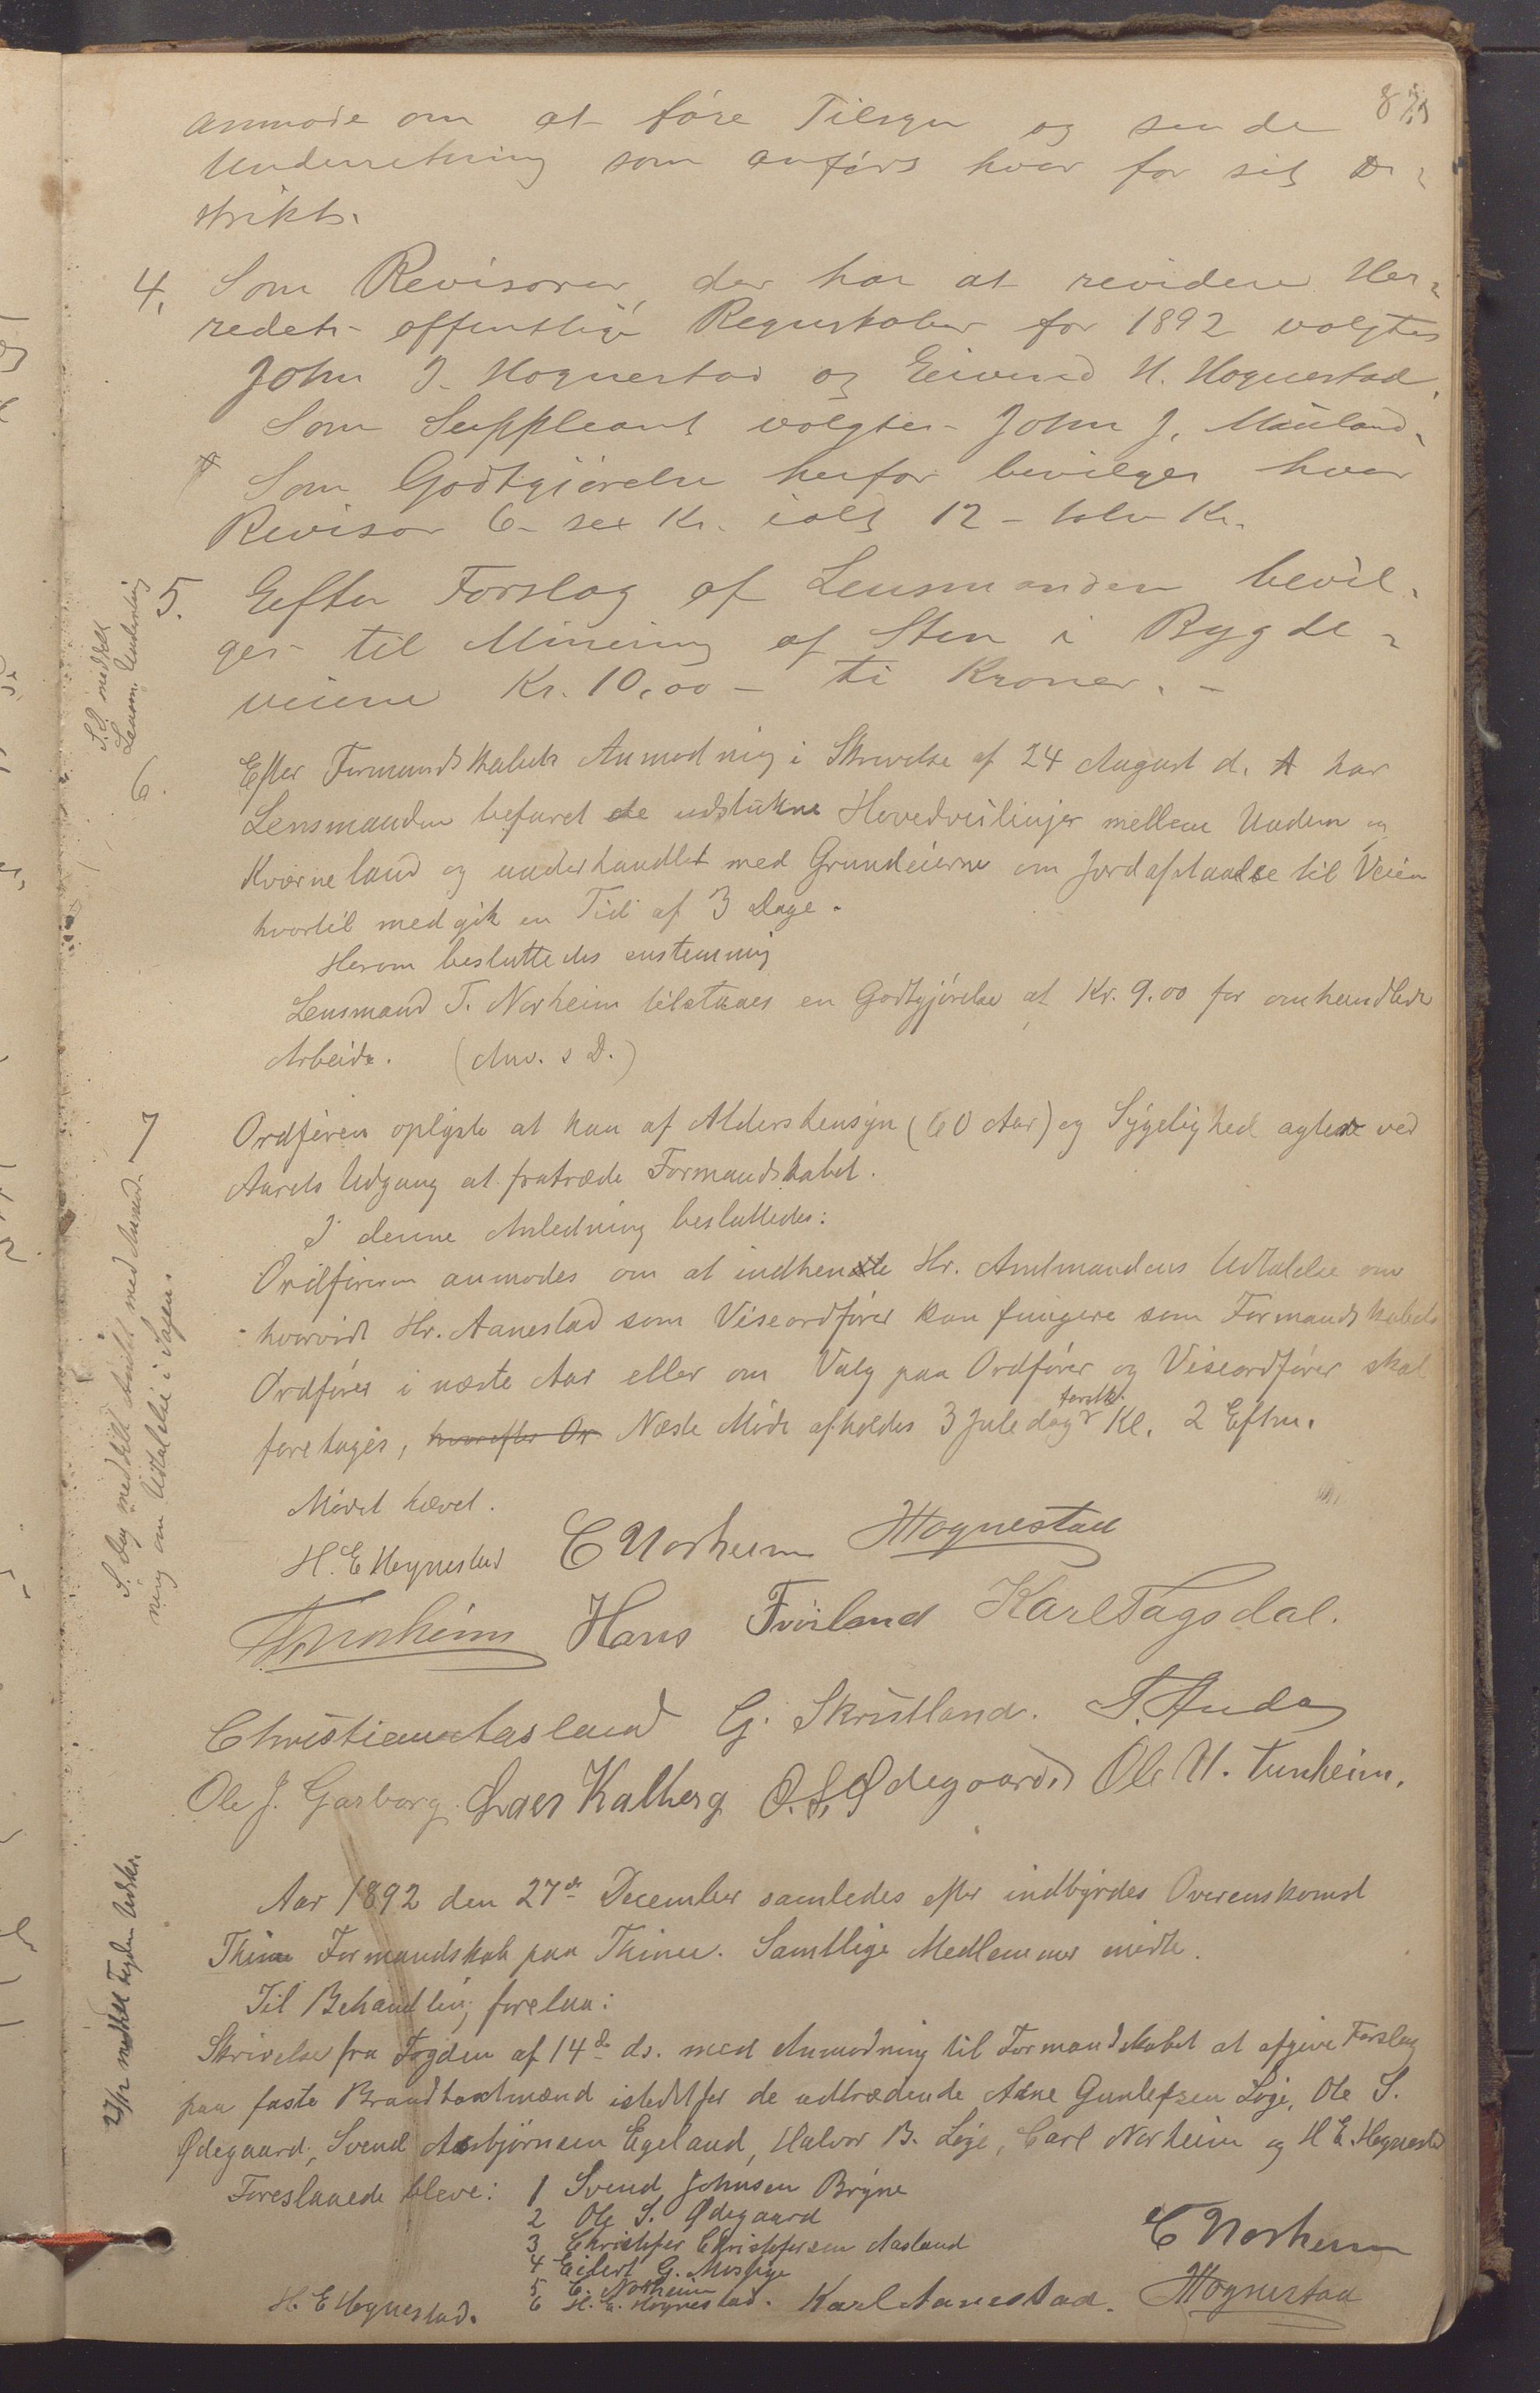 anmode om at føre Tilsyn og sende
Underretning som anførs hver for sit Di-
strikt.
4. Som Revisorer, der har at revidere Her-
redets offentlige Regnskaber for 1892 valgtes
John J. Hognestad og Eivind H. Hognestad.
Som Suppleant valgtes John J. Mauland.
Som Godtgjørelse herfor bevilges hver
Revisor 6 - sex Kr. ialt 12 - tolv Kr.
5. Efter Forslag af Lensmanden bevil-
ges til Minering af Sten i Bygde-
veiene Kr. 10,00 - ti Kroner. -
S.D. meddelt
Lensm. Underretnig
6. Efter Formandskabets Anmodning i Skrivelse af 24 August d. A har
Lensmanden befaret de udstukne Hovedveilinjer mellem Undem og
Kværneland og underhandlet med Grundeierne om Jordafstaaelse til Veien
hvortil medgik en Tid af 3 Dage.
Herom besluttedes enstemmig
Lensmand T. Norheim tilstaaes en Godtgjørelse af Kr. 9.00 for omhandlede
Arbeide. (Anv. s D.)
7 Ordføren oplyste at han af Aldershensyn (60 Aar) og Sygelighed agtede ved
Aarets Udgang at fratræde Formandskabet.
I denne Anledning besluttedes:
Ordføreren anmodes om at indhente Hr. Amtmandens Udtalelse om
hvorvidt Hr. Aanestad som Viseordfører kan fungere som Formandskabets
Ordfører i næste Aar eller om Valg paa Ordfører og Viseordfører skal
foretages, hvorefter Or Næste Møde afholdes 3 Juledag Kl. 2 Efterm.
S. Dag meddelt Amtet med Anmod-
ning om Udtalelse i Sagen
Mødet hævet.
H. E Hognestad C Norheim Hognestad
T. Norheim Hans Friland Karl Fagsdal.
Christian Aasland G. Skretland. T. Anda
Ole J. Garborg. Laers Kalberg O. S. Ødegaard. Ole H. Tunheim.
Aar 1892 den 27de December samledes efter indbyrdes Overenskomst
Thime Formandskab paa Thime. Samtlige Medlemmer mødte.
Til Behandling forelaa:
27/12 meddelt Fogden Udskr.
Skrivelse fra Fogden af 14de ds. med Anmodning til Formandskabet at afgive Forslag
paa faste Brandtaxtmænd istedetfor de udtrædende Arne Gunlefsen Løge, Ole S.
Ødegaard, Svend Asbjørnsen Egeland, Halvor B. Løge, Carl Norheim og H E. Hognestad
Foreslaaede bleve: 1 Svend Johnsen Bryne
2 Ole S. Ødegaard
3 Christofer Christofersen Aasland
4 Eilert G. Moslige
5 C. Norheim
6 H. E. Hognestad.
C Norheim
H. E Hognestad. Karl Aanestad. Hognestad